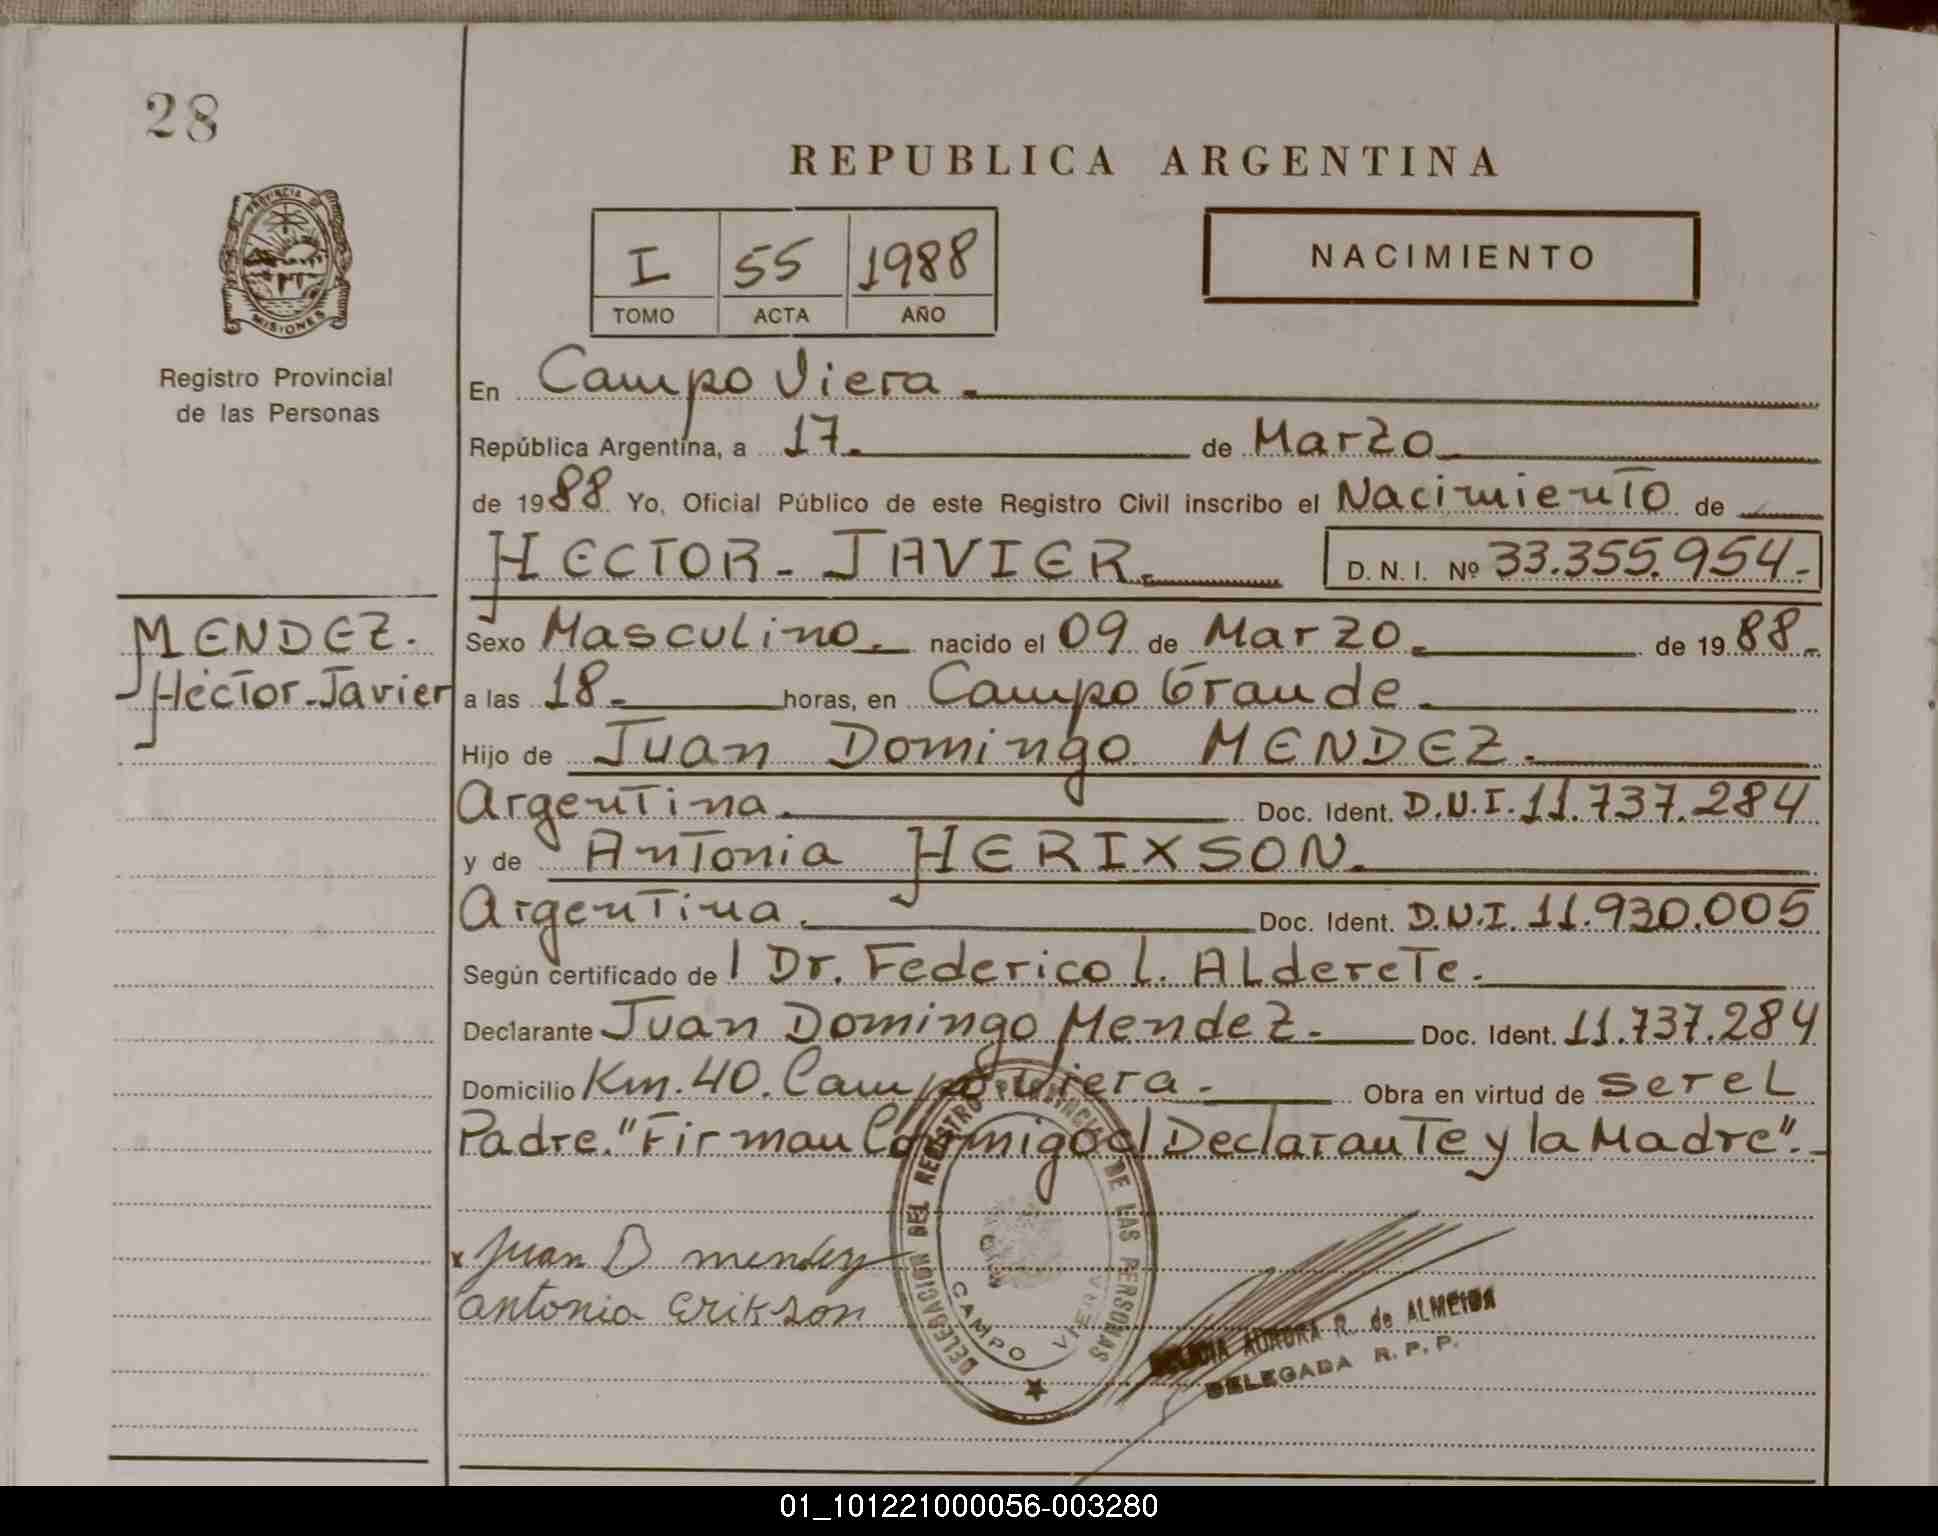 28
REPUBLICA ARGENTINA
PROVINCIA DE
MISIONES
Registro Provincial
de las Personas
I 55 1988
TOMO ACTA AÑO
NACIMIENTO
En Campo Viera.
República Argentina, a 17. de Marzo
de 1988 Yo, Oficial Público de este Registro Civil inscribo el Nacimiento de
HECTOR-JAVIER. D. N. I. Nº 33.355.954-
MENDEZ.
Héctor-Javier
Sexo Masculino. nacido el 09 de Marzo. de 1988.
a las 18. horas, en Campo Grande.
Hijo de Juan Domingo MENDEZ.
Argentina. Doc. Ident. D.N.I. 11.737.284
y de Antonia HERIXSON.
Argentina. Doc. Ident. D.N.I. 11.930.005
Según certificado de l Dr. Federico L. Alderete.
Declarante Juan Domingo Mendez. Doc. Ident. 11.737.284
Domicilio Km. 40. Campo Viera. Obra en virtud de ser el
Padre. "Firman Conmigo el Declarante y la Madre".
x Juan D mendez
antonia Erikson
DELEGACION DEL REGISTRO PROVINCIAL DE LAS PERSONAS
CAMPO VIERA
AURORA R. de ALMEIDA
DELEGADA R. P. P.
01_101221000056-003280